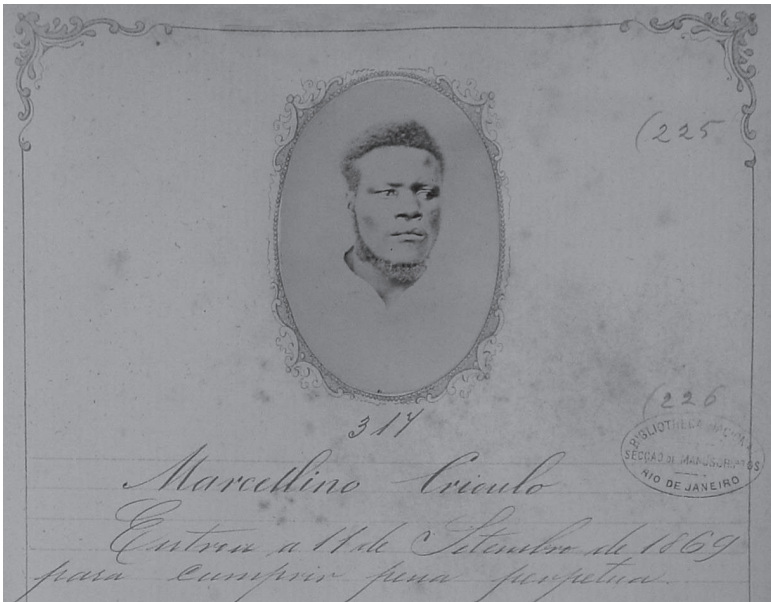 (225
(226
317
BIBLIOTHECA
SECÇÃO DE MANUSCRIPTOS
RIO DE JANEIRO
Marcellino Crioulo
Entrou a 11 de Setembro de 1869
para cumprir pena perpetua.